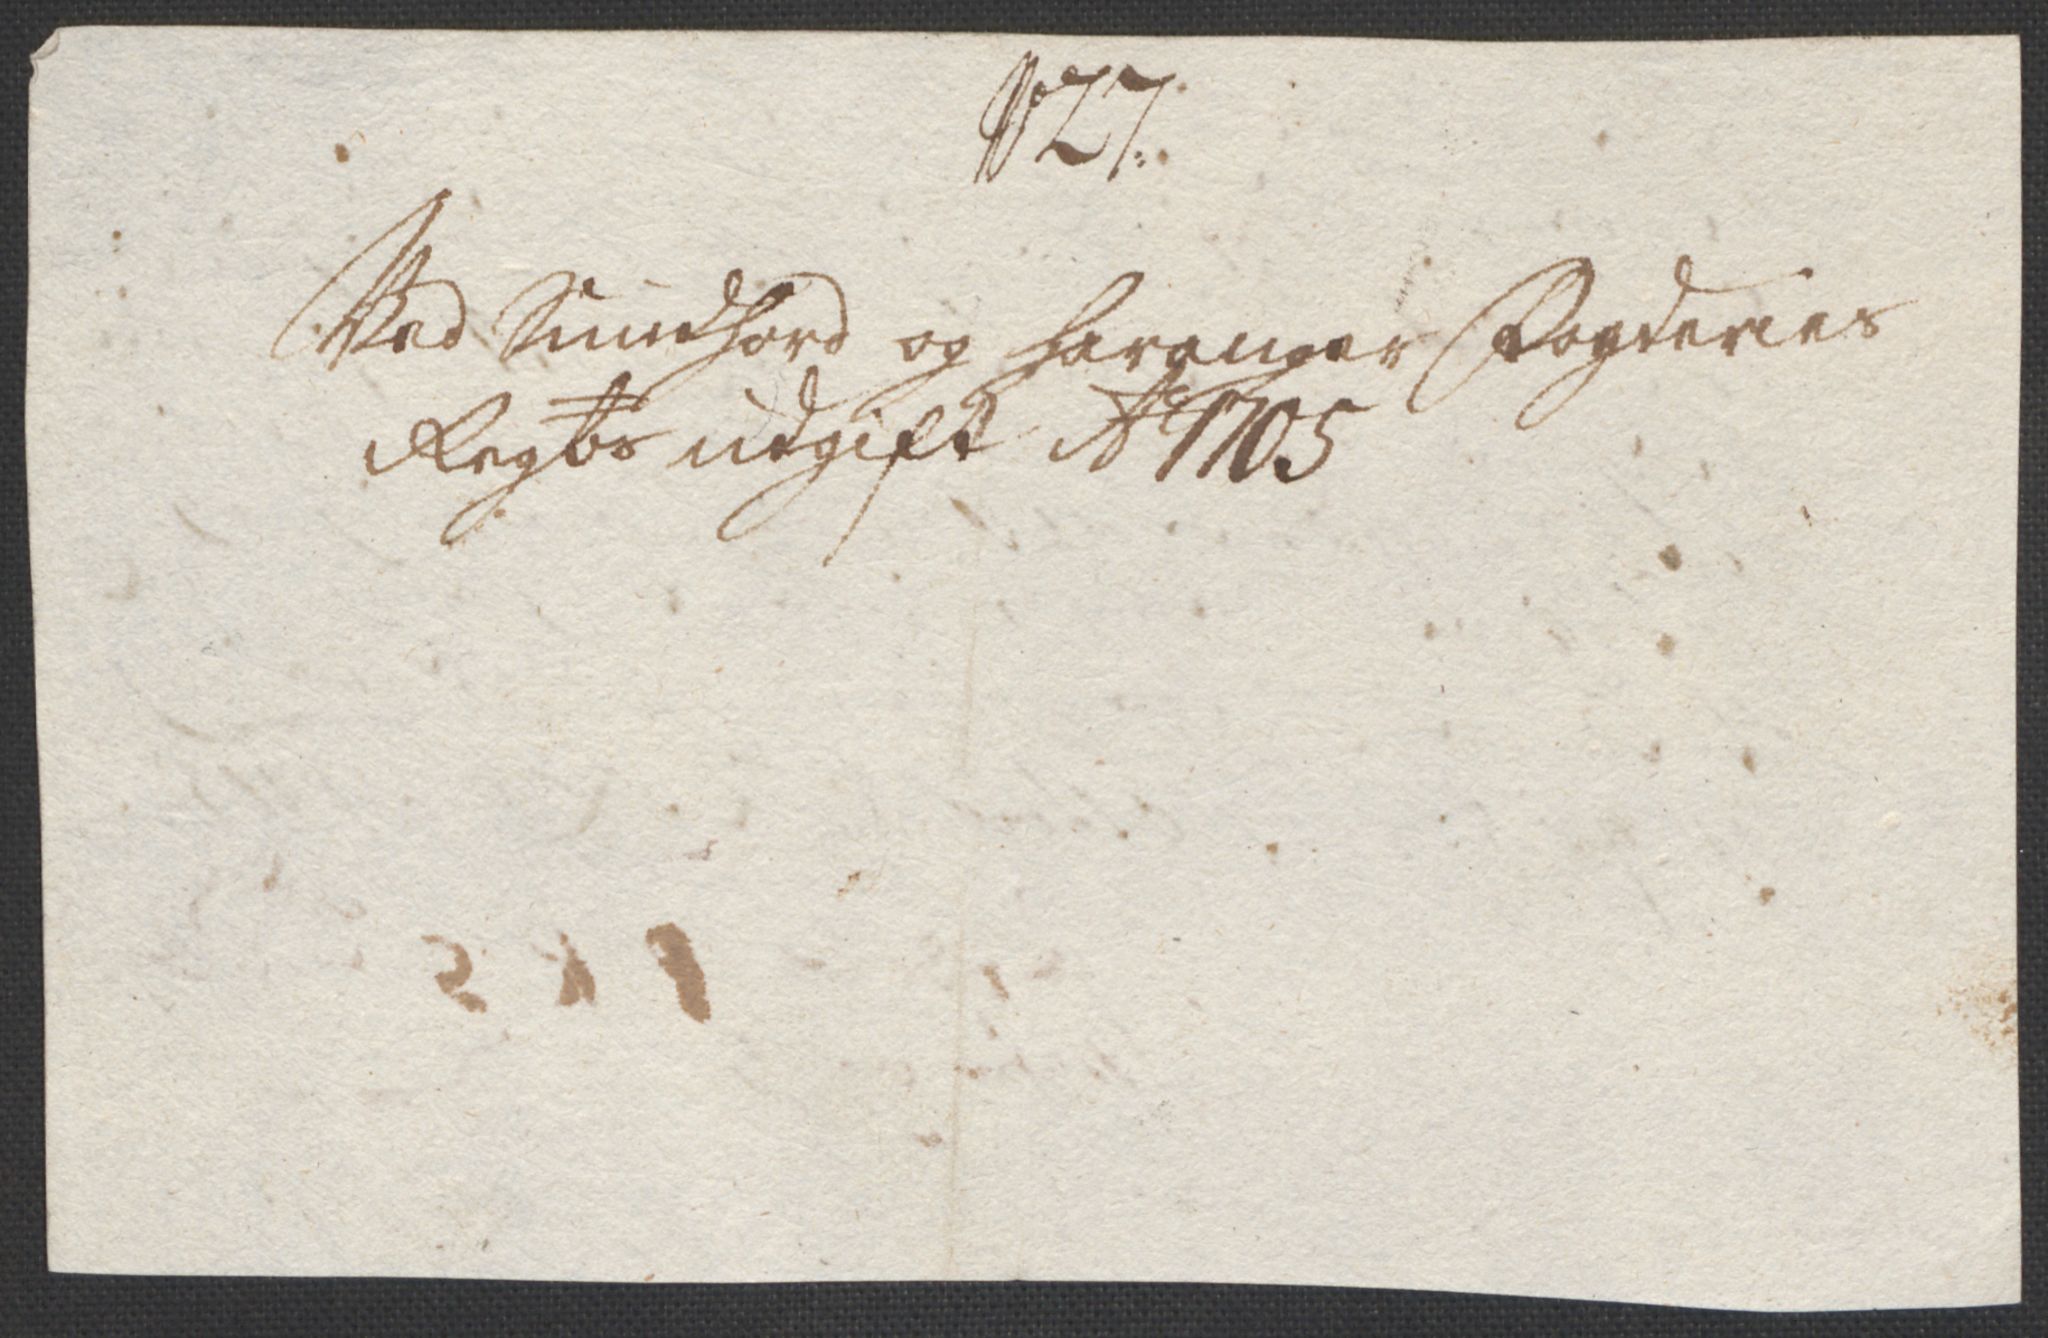 No 27.
Ved Sundhord og Haranger Fogderies
Regbs udgift Ao 1705